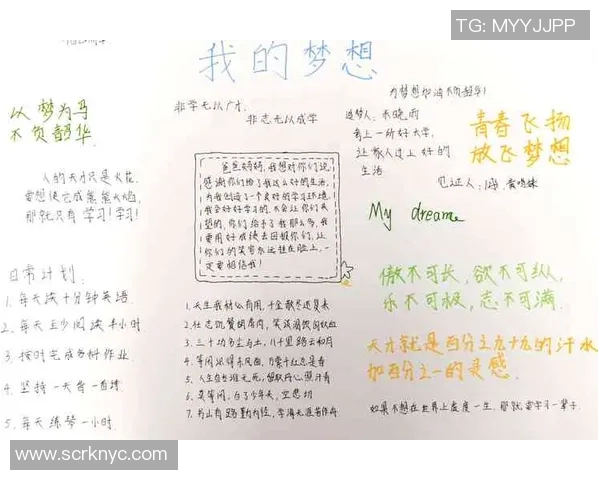 TG: MYYJJPP
我的梦想
以梦为马
不负韶华
人的天才只是火花,
要想使它成熊熊火焰,
那就只有学习!学习!
日常计划
1. 每天读十分钟英语.
2. 每天至少阅读半小时
3. 按时完成各科作业
4. 坚持一天背一首诗
5. 每天练琴一小时.
非学无以广才,
非志无以成学
爸爸妈妈,我想对你们说,
感谢你们给了我这么好的生活,
为我创造了一个良好的学习环境.
我会好好学习的,不会让你们失
望的,你们给予了我那么多,我
要用好成绩去回报你们,让
你们的笑容永远挂在脸上,一
定要相信我!
1. 天生我材必有用,千金散尽还复来
2. 壮志饥餐胡虏肉,笑谈渴饮匈奴血
3. 三十功名尘与土,八千里路云和月
4. 等闲识得东风面,万紫千红总是春
5. 人生自古谁无死,留取丹心照汗青
6. 莫等闲,白了少年头,空悲切
7. 书山有路勤为径,学海无涯苦作舟
为梦想加油不负韶华!
追梦人:
考上一所好大学,
让家人过上好的
生活
见证人:
青春飞扬
放飞梦想
My dream
傲不可长,欲不可纵,
乐不可极,志不可满.
天才就是百分之九十九的汗水
加百分之一的灵感
如果不想在世界上虚度一生,那就要学习一辈子.
www.scrknyc.com